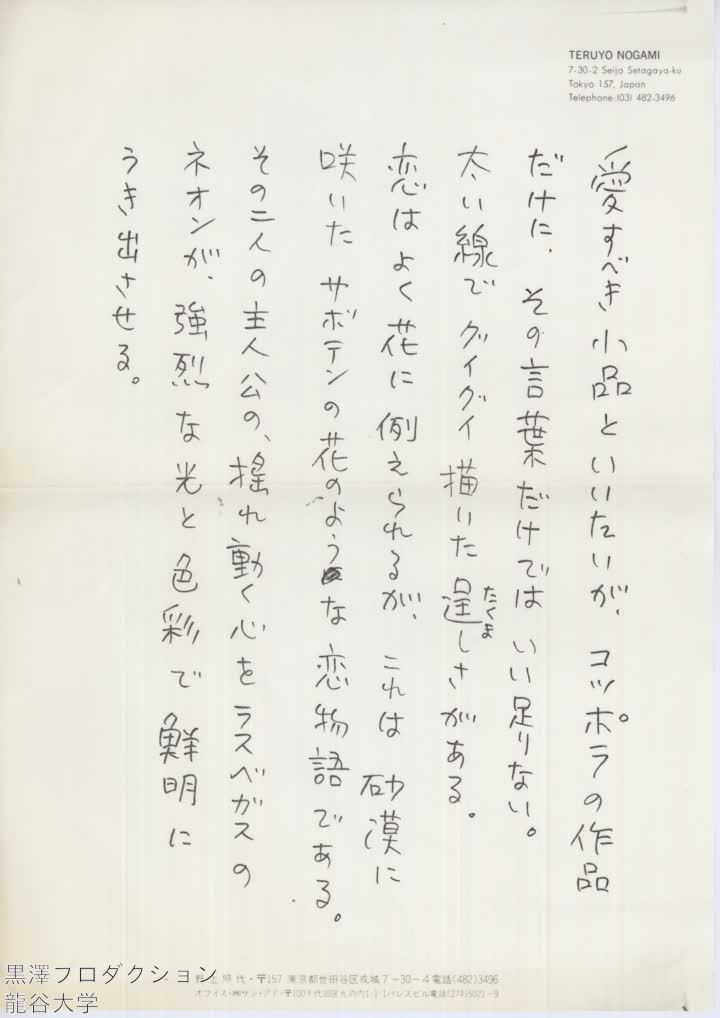 TERUYO NOGAMI
7-30-2 Seijo Setagaya-ku
Tokyo 157, Japan
Telephone (03) 482-3496
愛すべき小品といいたいが、コッポラの作品
だけに、その言葉だけではいい足りない。
太い線でグイグイ描いた逞しさがある。
たくま
恋はよく花に例えられるが、これは砂漠に
咲いたサボテンの花のような恋物語である。
その二人の主人公の、揺れ動く心をラスベガスの
ネオンが、強烈な光と色彩で鮮明に
うき出させる。
野上照代・〒157 東京都世田谷区成城7-30-4電話(482)3496
オフィス・㈱サン・アド・〒100千代田区丸の内1-1-1パレスビル電話(274)
黒澤プロダクション
龍谷大学